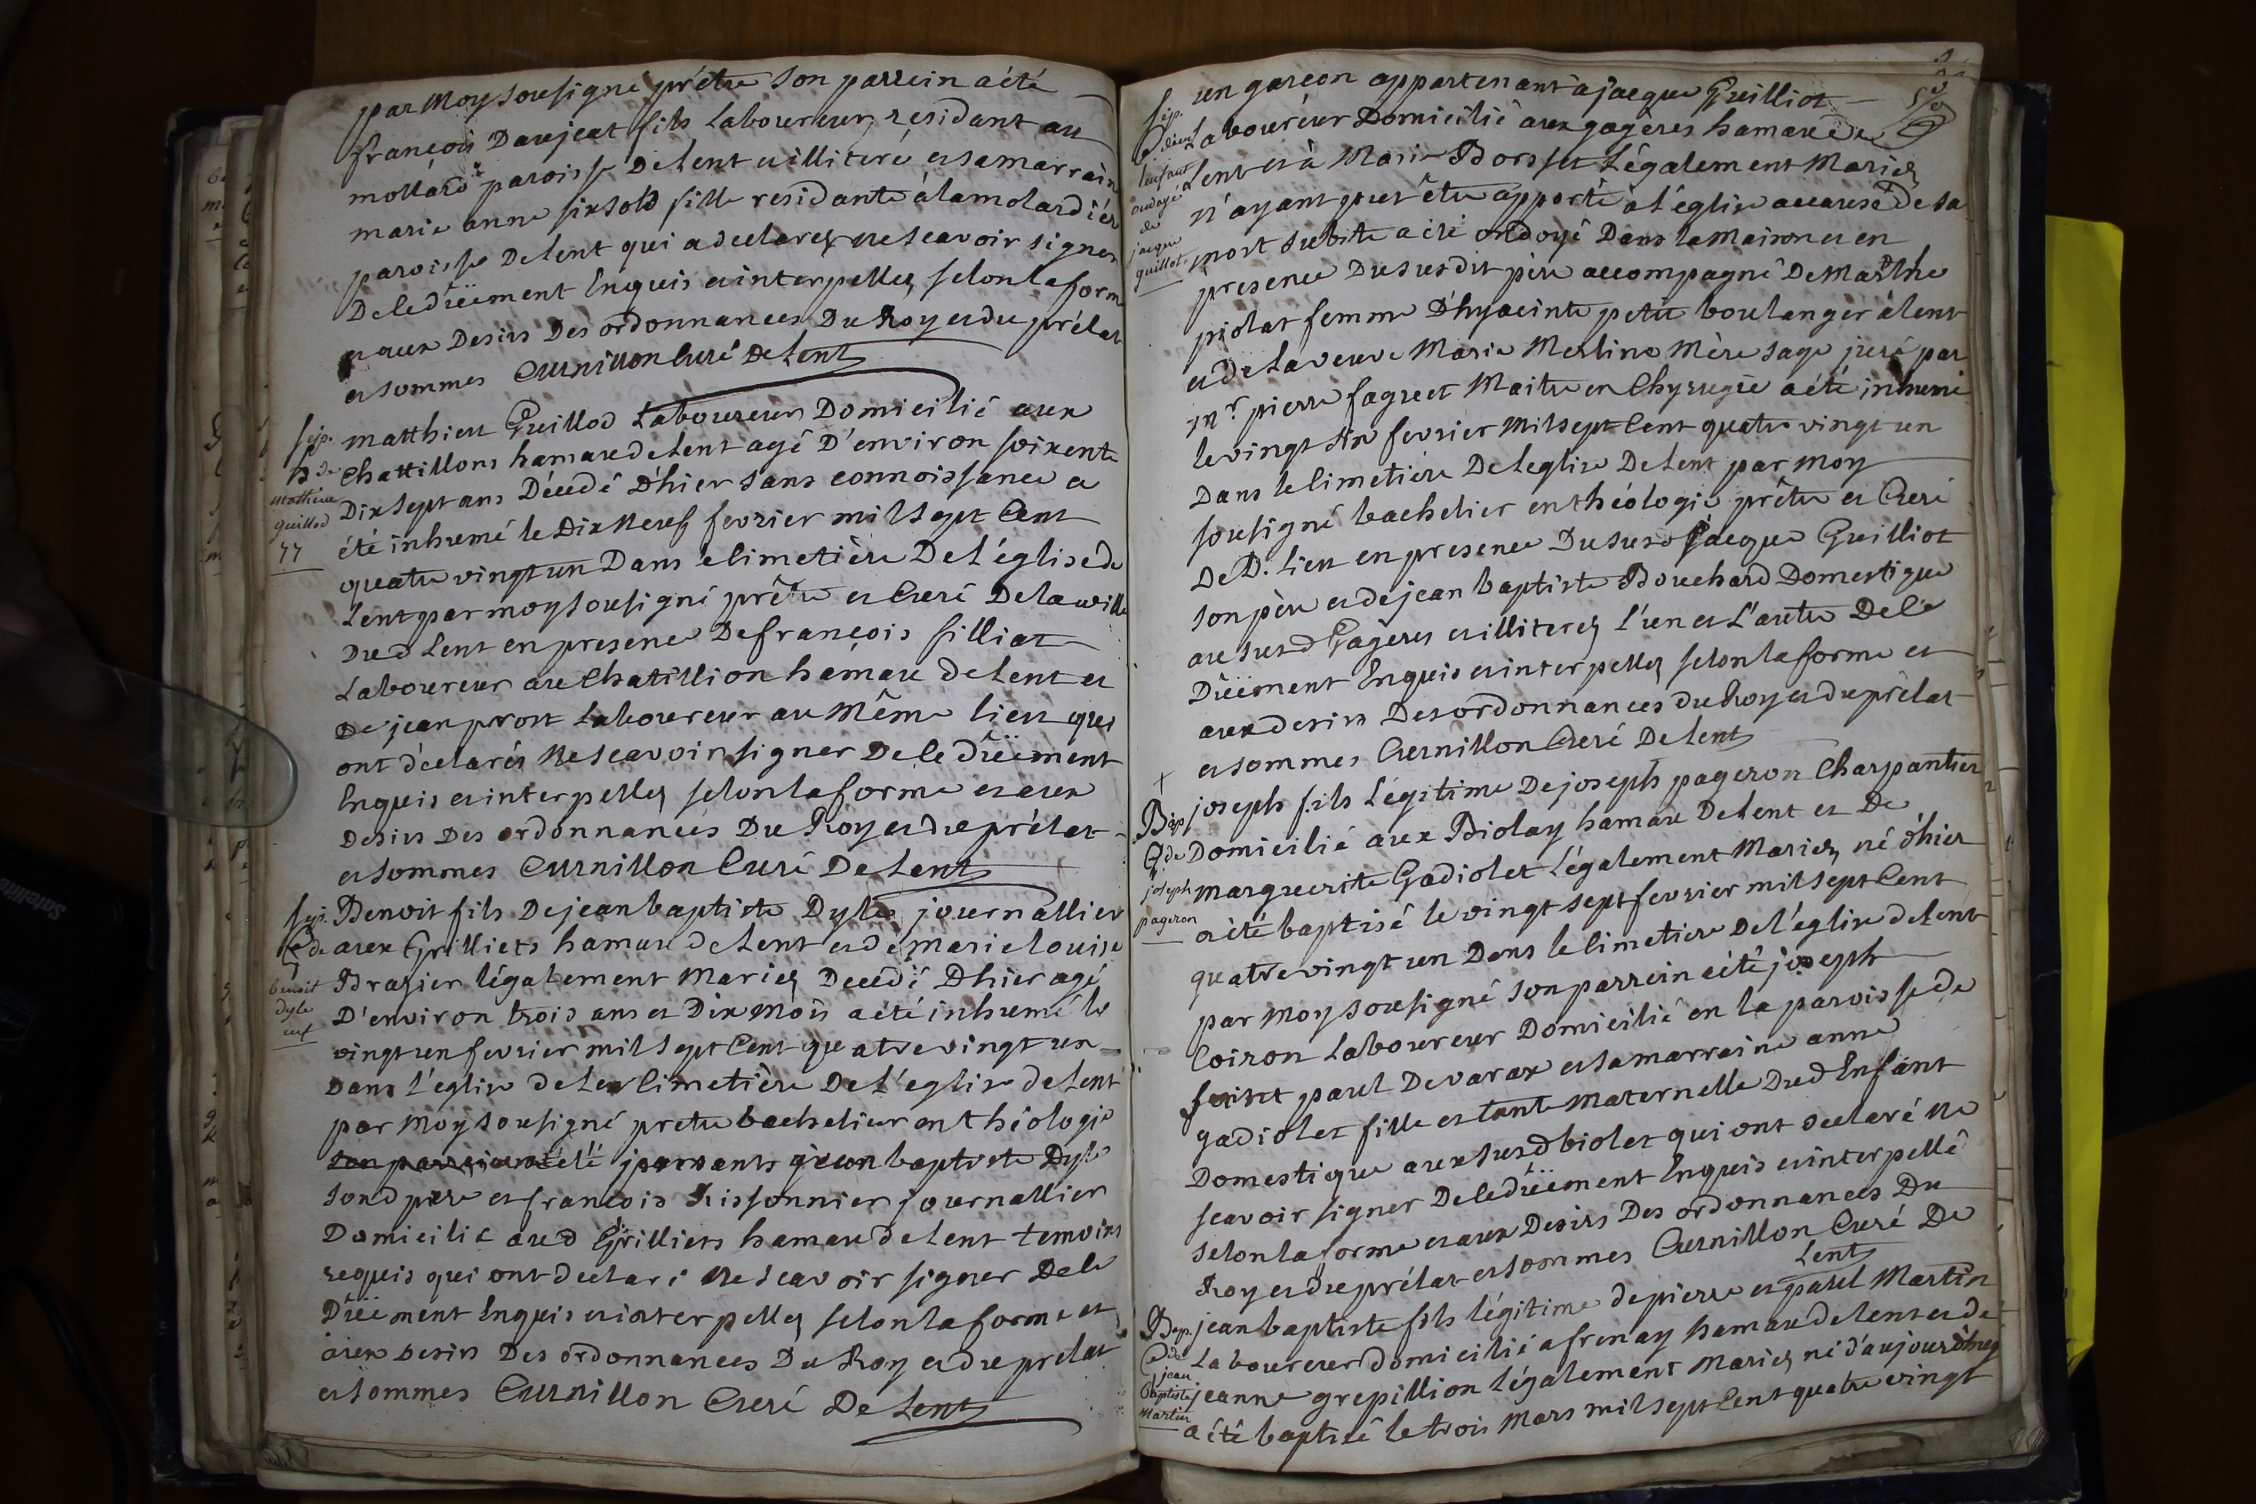 par Moy sousigné prêtre son parrein a été
françois Daujeat fils Laboureur résidant au
mollard paroisse De Lent et illiteré et sa marrain
marie anne fille residante à la molardiér
paroisse De Lent qui a declarez ne scavoir signer
De le dûëment Enquis et interpellez selon la form
et aux Desirs Des ordonnances Du Roy et du prélat
et sommes Curnillon Curé De Lent
sep.
de
mathieu
guillod
77
matthieu Guillod Laboureur Domicilié aux
Chattillons hamau de Lent agé D'environ soixente
Dix sept ans Décedé d'hier sans connoissance a
été inhumé le Dix Neuf fevrier mil sept Cent
quatre vingt un Dans le Cimetière De L'église de
Lent par moy sousigné prêtre et Curé De la ville
Dud Lent en presence De françois filliat
Laboureur au Chatillion hamau de Lent et
De jean prost Laboureur au Même lieu qui
ont déclarés Ne scavoir signer De le dûëment
Enquis et interpellez selon la forme et aux
Desirs Des ordonnances Du Roy et du prélat
et sommes Curnillon Curé De Lent
sep.
de
benoit
dyle
enf
Benoit fils De jean baptiste Dyle journallier
aux Grilliets hamau de Lent et de marie louise
Brazier légalement Mariez Decedé D'hier agé
D'environ trois ans et Dix Mois a été inhumé le
vingt un fevrier mil sept Cent quatre vingt un
Dans l'église de Cimetière De L'eglise de Lent
par Moy sousigné pretre bachelier en théologie
son parrein a été jean baptiste Dyle
sond pere et françois Tissonnier journallier
Domicilié aud Grilliets hamau de Lent temoins
requis qui ont declaré Ne Scavoir signer De le
Dûëment Enquis et interpellez selon la forme et
aux Desirs Des ordonnances Du Roy et du prelat
et sommes Curnillon Curé De Lent
sep.
de
l'enfant
ondoyé
de
jaeque
guillot
un garçon appartenant à jacque Guilliot
Laboureur Domicilié aux gagères hamau de
Lent et à Marie Borsset Légalement Mariez
N'ayant peut être apporté à L'église acause de sa
mort subite a été ondoyé Dans la Maison et en
presence Dususdit père accompagné De Marthe
piolat femme d'hyacinte petit boulanger à Lent
et de La veuve Marie Merlino Mère sage juré par
Mr pierre faguet Maitre en Chyrurgie a été inhumé
le vingt Six fevrier Mil sept Cent quatre vingt un
Dans le Cimetière De Leglise De Lent par Moy
sousigné bachelier en théologie prêtre et Curé
De D. Lieu en presence Du susd jacque Guilliot
son père et de jean baptiste Bouchard Domestique
au susd Gagères et illiterez l'un et l'autre De le
Dûëment Enquis et interpellez selon la forme et
aux desirs Des ordonnances du Roy et du prélat
et sommes Curnillon Curé De Lent
Bap
de
joseph
pageron
joseph fils Légitime De joseph pageron Charpantier
Domicilié aux Biolay hamau De Lent et De
marguerite Gadiolet Légalement Mariez né d'hier
a été baptisé le vingt sept fevrier mil sept Cent
quatre vingt un Dans le Cimetiere De l'église de Lent
par Moy sousigné son parrein a été joseph
Coiron Laboureur Domicilié en la paroisse de
saint paul De varax et sa marraine anne
gadiolet fille et tante maternelle Dud Enfant
Domestique aux susd biolet qui ont declaré ne
scavoir signer De le dûëment Enquis et interpellé
selon la forme et aux Desirs Des ordonnances Du
Roy et du prélat et sommes Curnillon Curé De
Lent
Bap.
de
jean
baptiste
Martin
jean baptiste fils légitime de pierre et paul Martin
Laboureur domicilié a frenay hamau de Lent et de
jeanne grepillion légalement Mariez né d'aujourdhuy
a été baptisé le trois Mars mil sept Cent quatre vingt